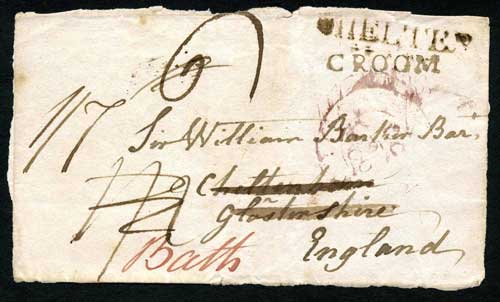 CHELTEN
CROOM
1/7
Sir William Barker Bar.
Cheltenham
Glostershire
Bath England